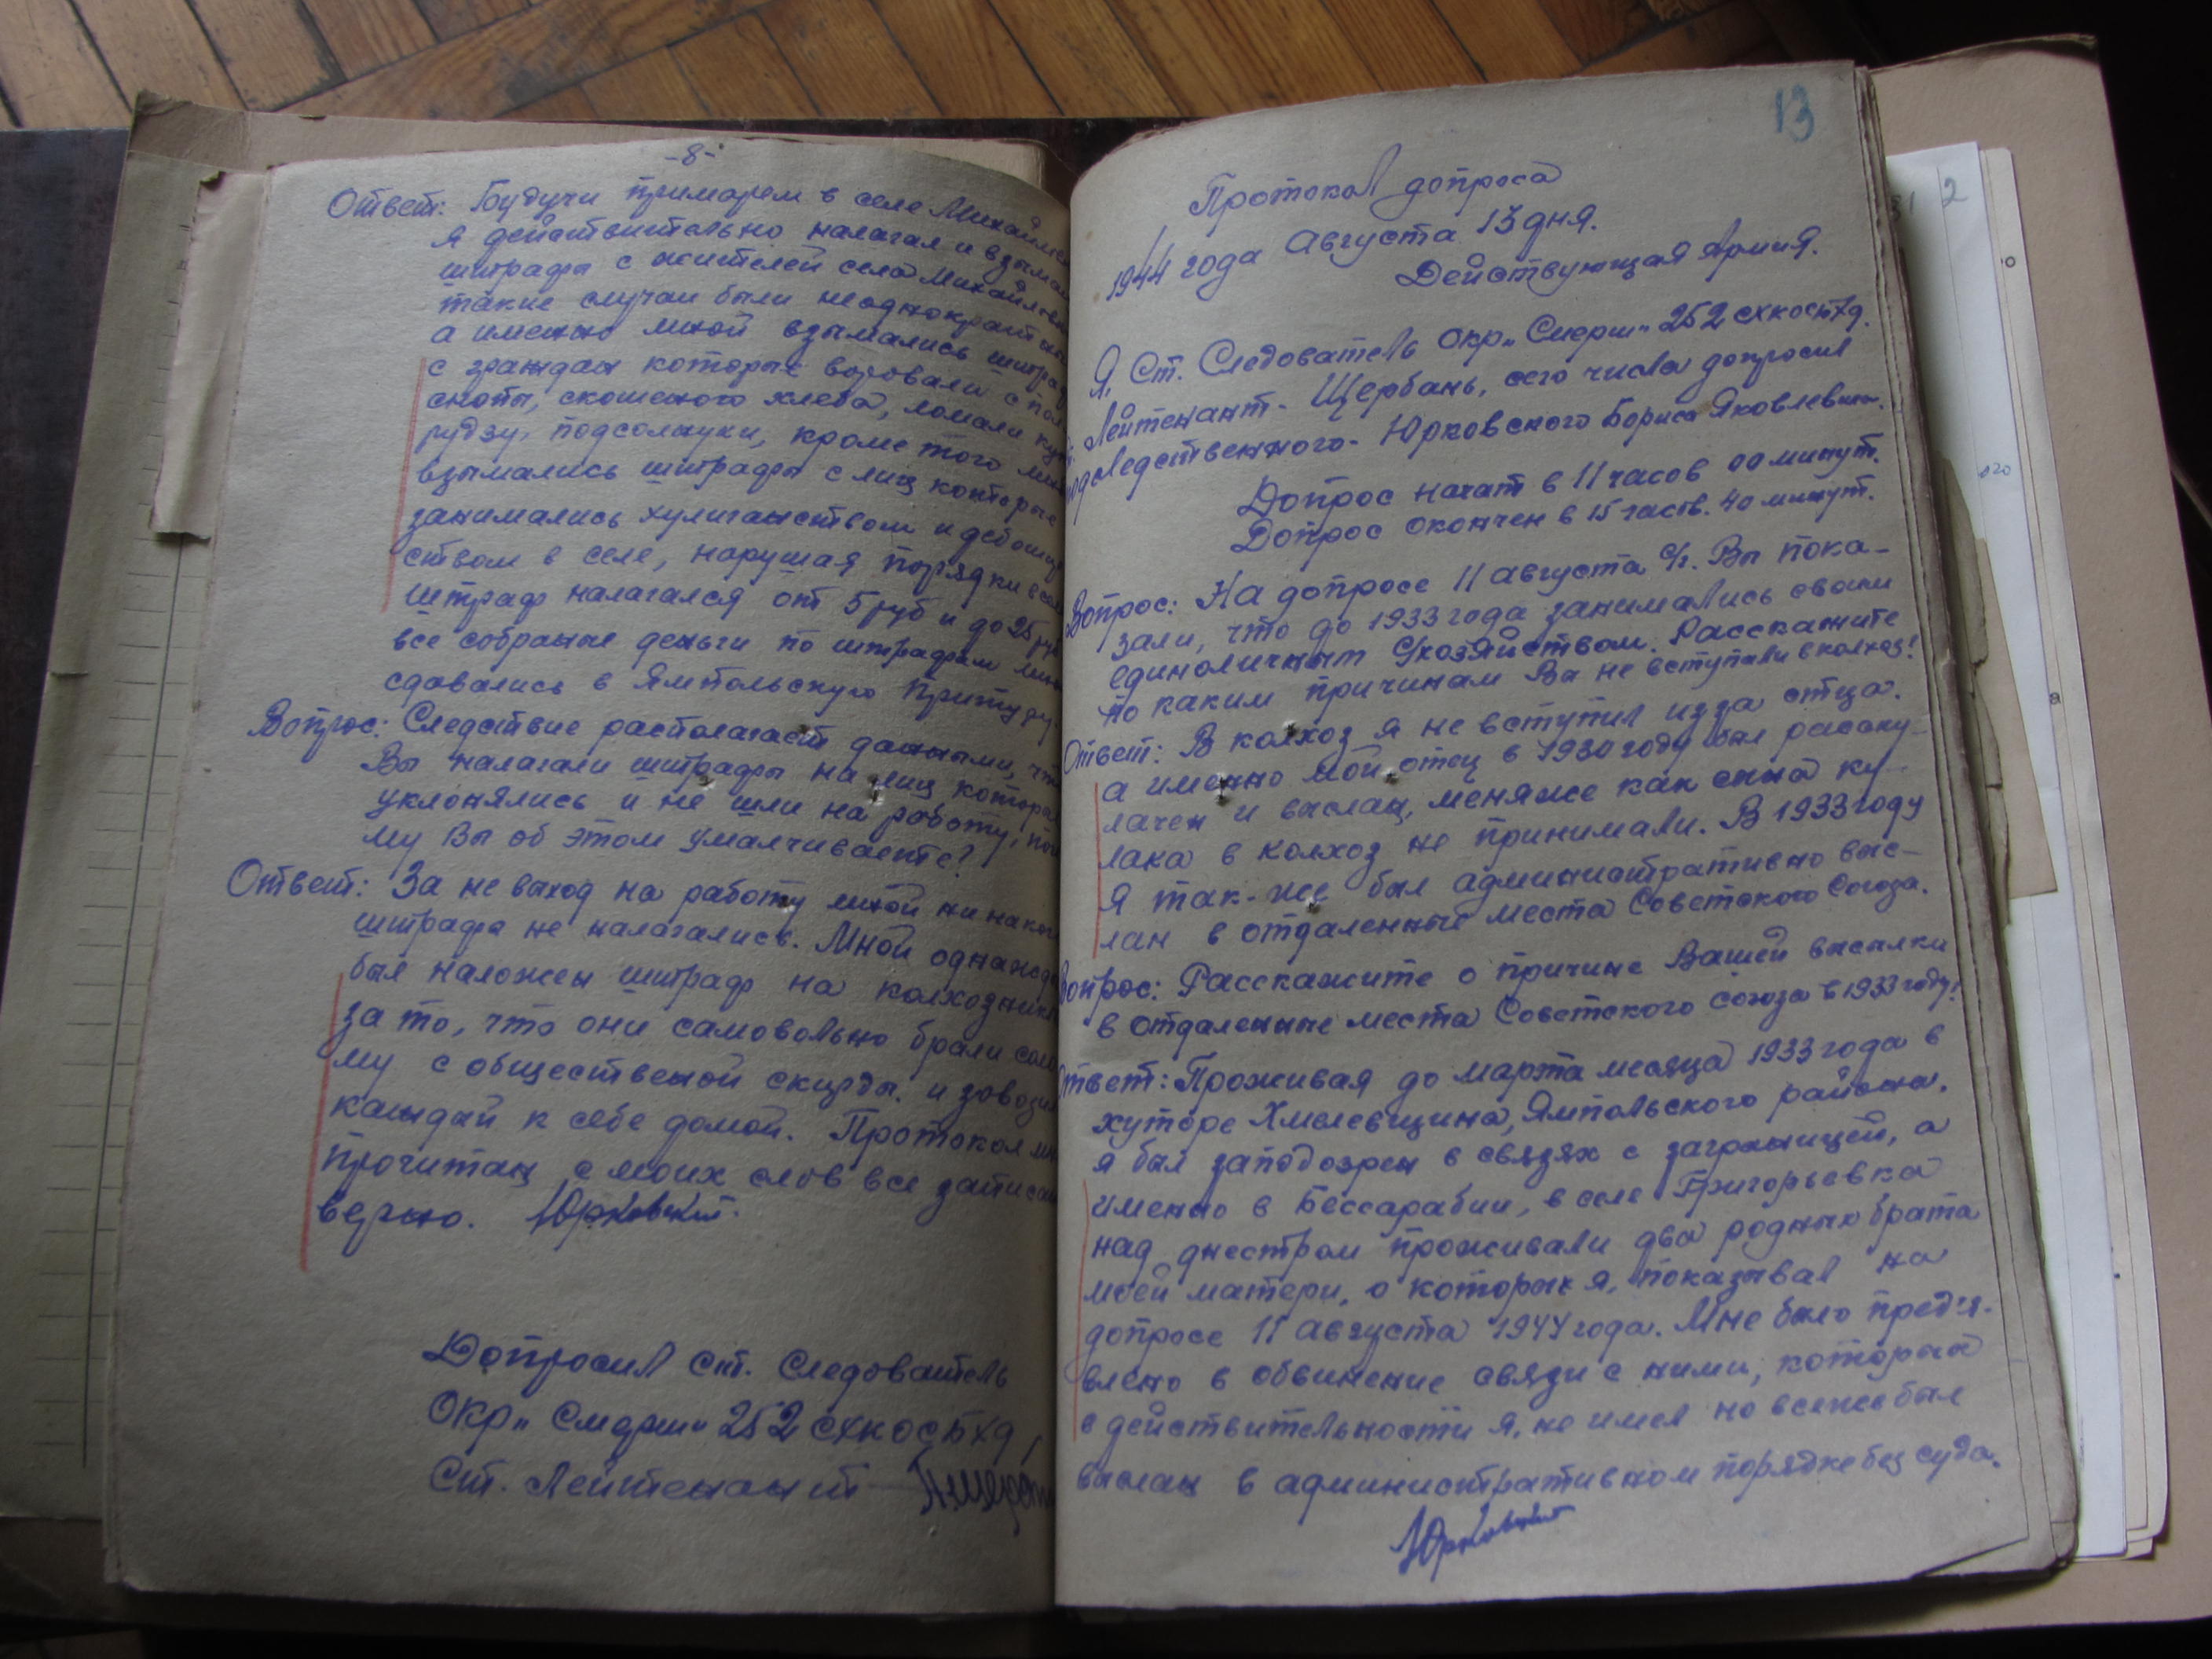 -8-
Ответ: Будучи примарем в селе Михайловке
я действительно налагал и взымал
штрафы с жителей села Михайловки
такие случаи были неоднократно
а именно мной взымались штрафы
с граждан которые воровали с поля
снопы, скошеного хлеба, ломали куку
рудзу, подсолнуки, кроме того мной
взымались штрафы с лиц которые
занимались хулиганством и дебошир
ством в селе, нарушая порядки в селе
Штраф налагался от 5 руб и до 25 руб
все собраные деньги по штрафам мной
сдавались в Ямпольскую Притуру.
Вопрос: Следствие располагает данными, что
Вы налагали штрафы на лиц которые
уклонялись и не шли на работу, поче
му Вы об этом умалчиваете?
Ответ: За не выход на работу мной ни каких
штрафа не налагались. Мной однажды
был наложен штраф на колхозников
за то, что они самовольно брали соло
му с общественой скирды. и завозил
каждай к себе домой. Протокол мной
прочитан с моих слов все записано
верно. Юрковский.
Допросил Ст. Следователь
ОКР „Смерш" 252
Ст. Лейтенант
13
Протокол допроса
1944 года Августа 13 дня.
Действующая Армия.
Я, Ст. Следователь ОКР „Смерш" 252
Лейтенант - Щербань, сего числа допросил
подследственного - Юрковского Бориса Яковлевича.
Допрос начат в 11 часов 00 минут.
Допрос окончен в 15 часов. 40 минут.
Вопрос: На допросе 11 августа с/г. Вы пока-
зали, что до 1933 года занимались своим
единоличным с/хозяйством. Расскажите
по каким причинам Вы не вступали в колхоз?
Ответ: В колхоз я не вступил изза отца.
а именно мой отец в 1930 году был раскку-
лачен и выслан, меня же как сына ку-
лака в колхоз не принимали. В 1933 году
я так-же был административно выс-
лан в отдаленные места Советского Союза.
Вопрос: Расскажите о причине Вашей высылки
в отдаленные места Советского Союза в 1933 году?
Ответ: Проживая до марта месяца 1933 года в
хуторе Хмелевщина, Ямпольского района.
я был заподозрен в связях с заграницей, а
именно в Бессарабии, в селе Григорьевка
над днестром проживали два родных брата
моей матери, о которых я, показывал на
допросе 11 августа 1944 года. Мне было предъя-
влено в обвинение связи с ними, которых
в действительности я, не имел но все же был
выслан в административном порядке без суда.
Юрковский